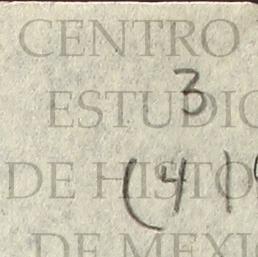 CENTRO
3
ESTUDIO
(41
DE HISTO
DE MEXI